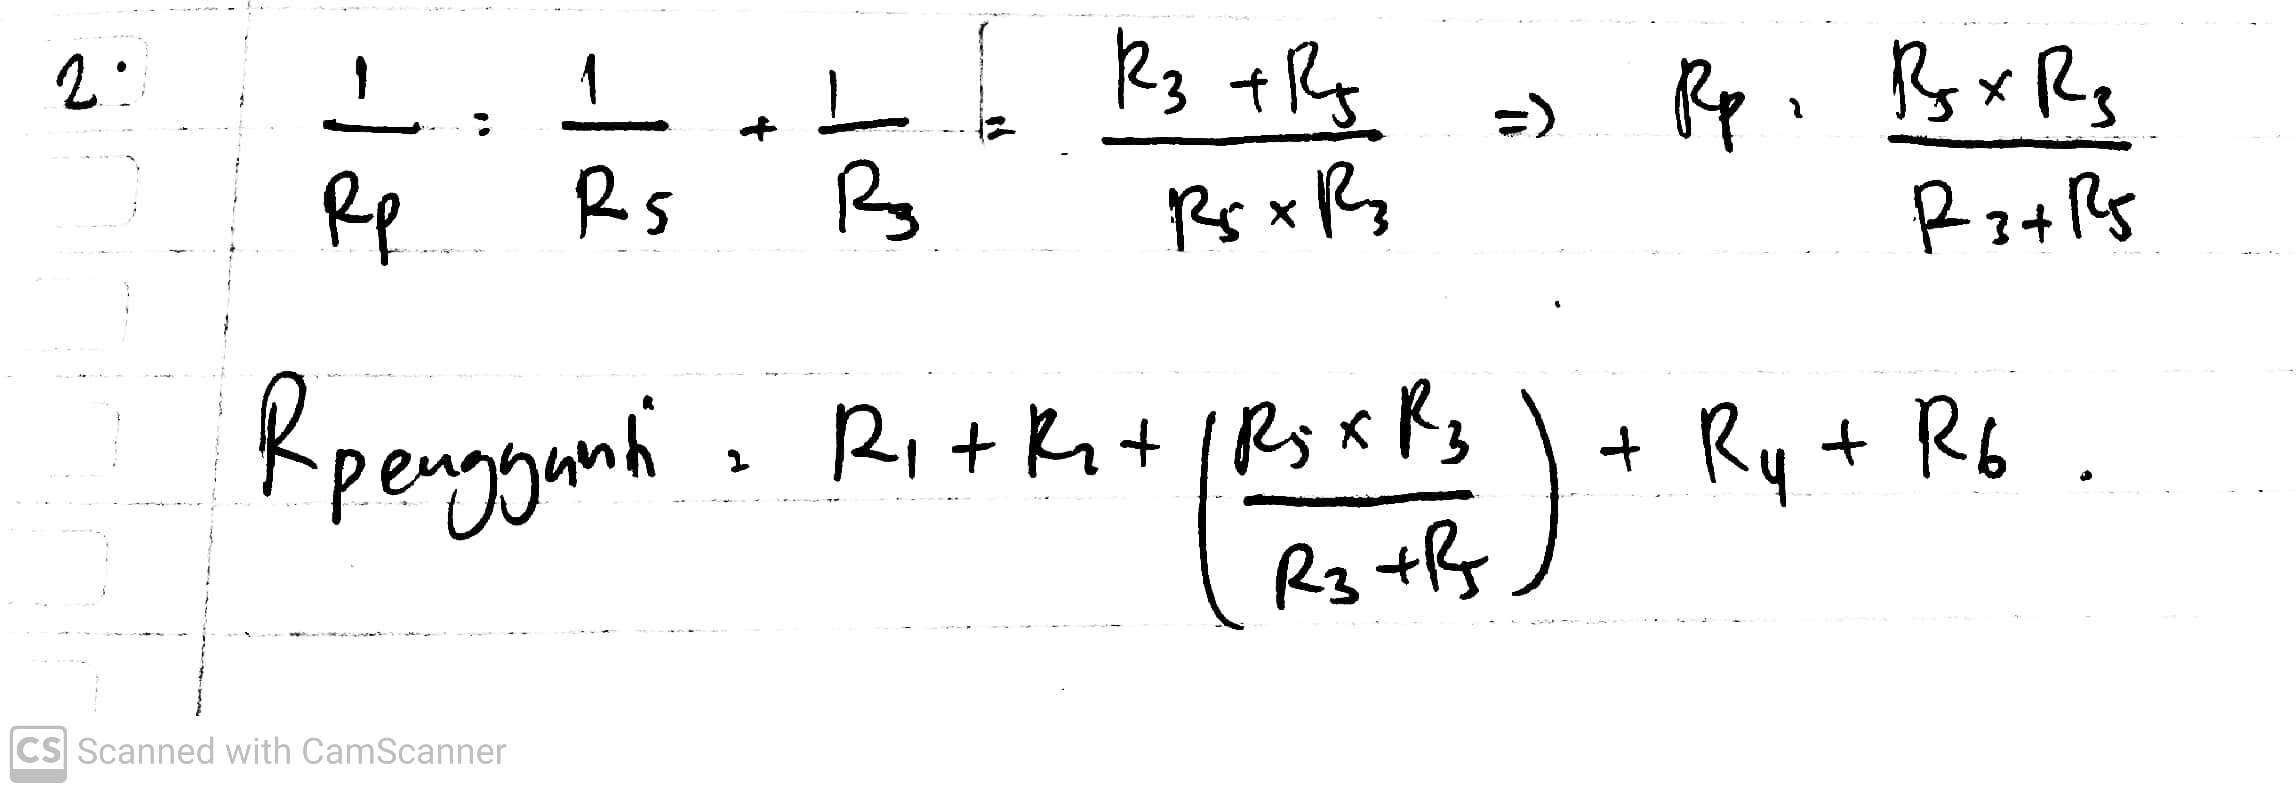 2. 1/Rp = 1/R5 + 1/R3 = (R3 + R5)/(R5 × R3) => Rp = (R5 × R3)/(R3 + R5)
Rpengganti = R1 + R2 + ((R5 × R3)/(R3 + R5)) + R4 + R6.
CS Scanned with CamScanner